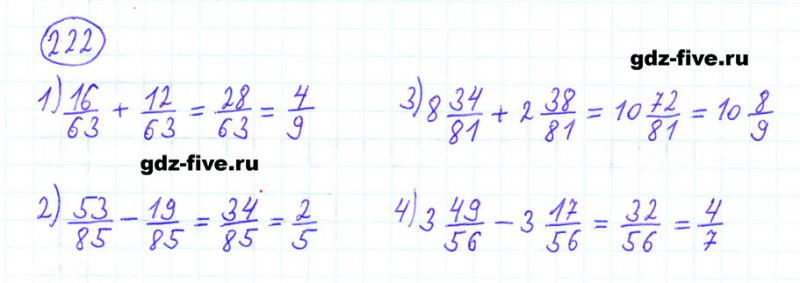 222
gdz-five.ru
1) 16/63 + 12/63 = 28/63 = 4/9
3) 8 34/81 + 2 38/81 = 10 72/81 = 10 8/9
gdz-five.ru
2) 53/85 − 19/85 = 34/85 = 2/5
4) 3 49/56 − 3 17/56 = 32/56 = 4/7